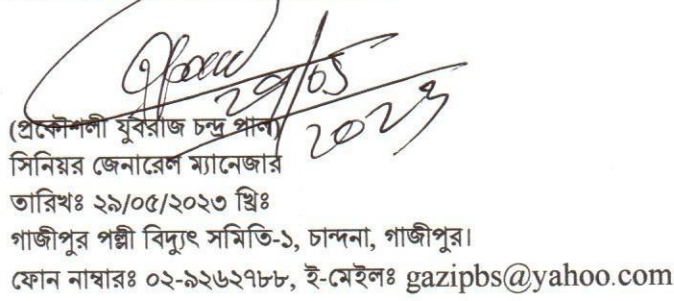 ২৯/০৫
২০২৩
(প্রকৌশলী যুবরাজ চন্দ্র পাল)
সিনিয়র জেনারেল ম্যানেজার
তারিখঃ ২৯/০৫/২০২৩ খ্রিঃ
গাজীপুর পল্লী বিদ্যুৎ সমিতি-১, চান্দনা, গাজীপুর।
ফোন নাম্বারঃ ০২-৯২৬২৭৮৮, ই-মেইলঃ gazipbs@yahoo.com